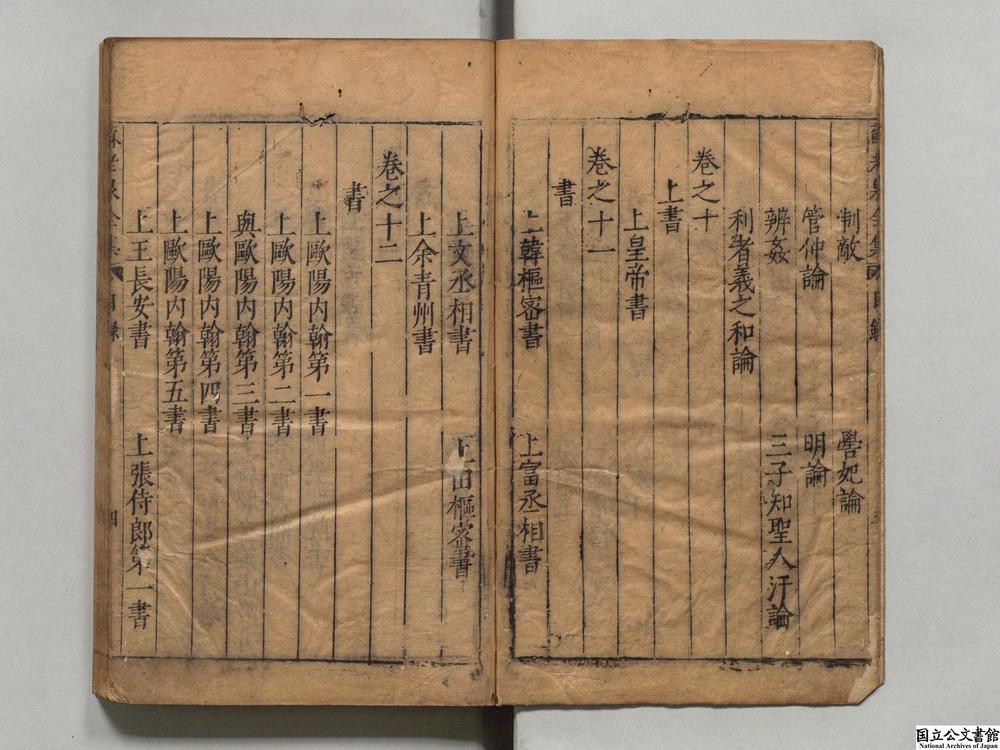 制敵 嚳妃論
管仲論 明論
辨姦 三子知聖人汙論
利者義之和論
卷之十
上書
上皇帝書
卷之十一
書
上韓樞密書 上富丞相書
上文丞相書 上田樞密書
上余青州書
卷之十二
書
上歐陽内翰第一書
上歐陽内翰第二書
與歐陽内翰第三書
上歐陽内翰第四書
上歐陽内翰第五書
上王長安書 上張侍郎第一書
蘇老泉全集 目錄 四
国立公文書館
National Archives of Japan